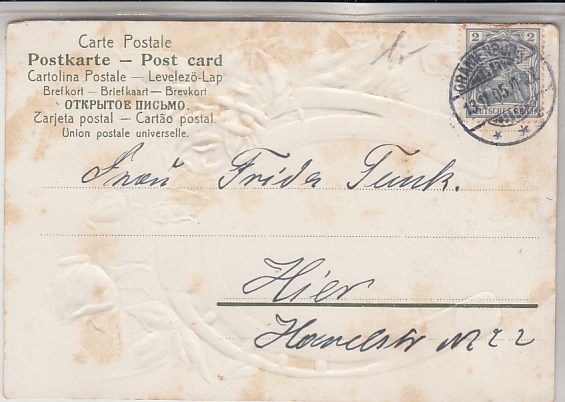 Carte Postale
Postkarte — Post card
Cartolina Postale — Levelező-Lap
Brefkort — Briefkaart — Brevkort
ОТКРЫТОЕ ПИСЬМО.
Tarjeta postal — Cartão postal
Union postale universelle.
1.-
2 2
ORANIENBURG
DEUTSCHES REICH
Frau Frida Funk.
Hier
Havelstr No 22